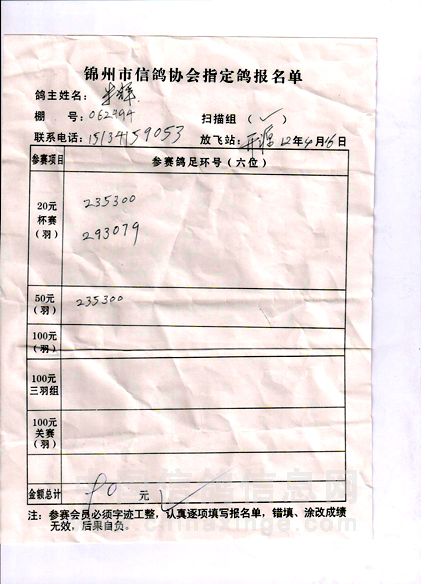 锦州市信鸽协会指定鸽报名单
鸽主姓名：朱辉
棚 号：062394 扫描组（✓）
联系电话：15134159053 放飞站：开源 12年4月15日
参赛项目 参赛鸽足环号（六位）
20元
杯赛
（羽）
235300
293079
50元
（羽）
235300
100元
（羽）
100元
三羽组
100元
关赛
（羽）
金额总计 90 元
注：参赛会员必须字迹工整，认真逐项填写报名单，错填、涂改成绩
无效，后果自负。